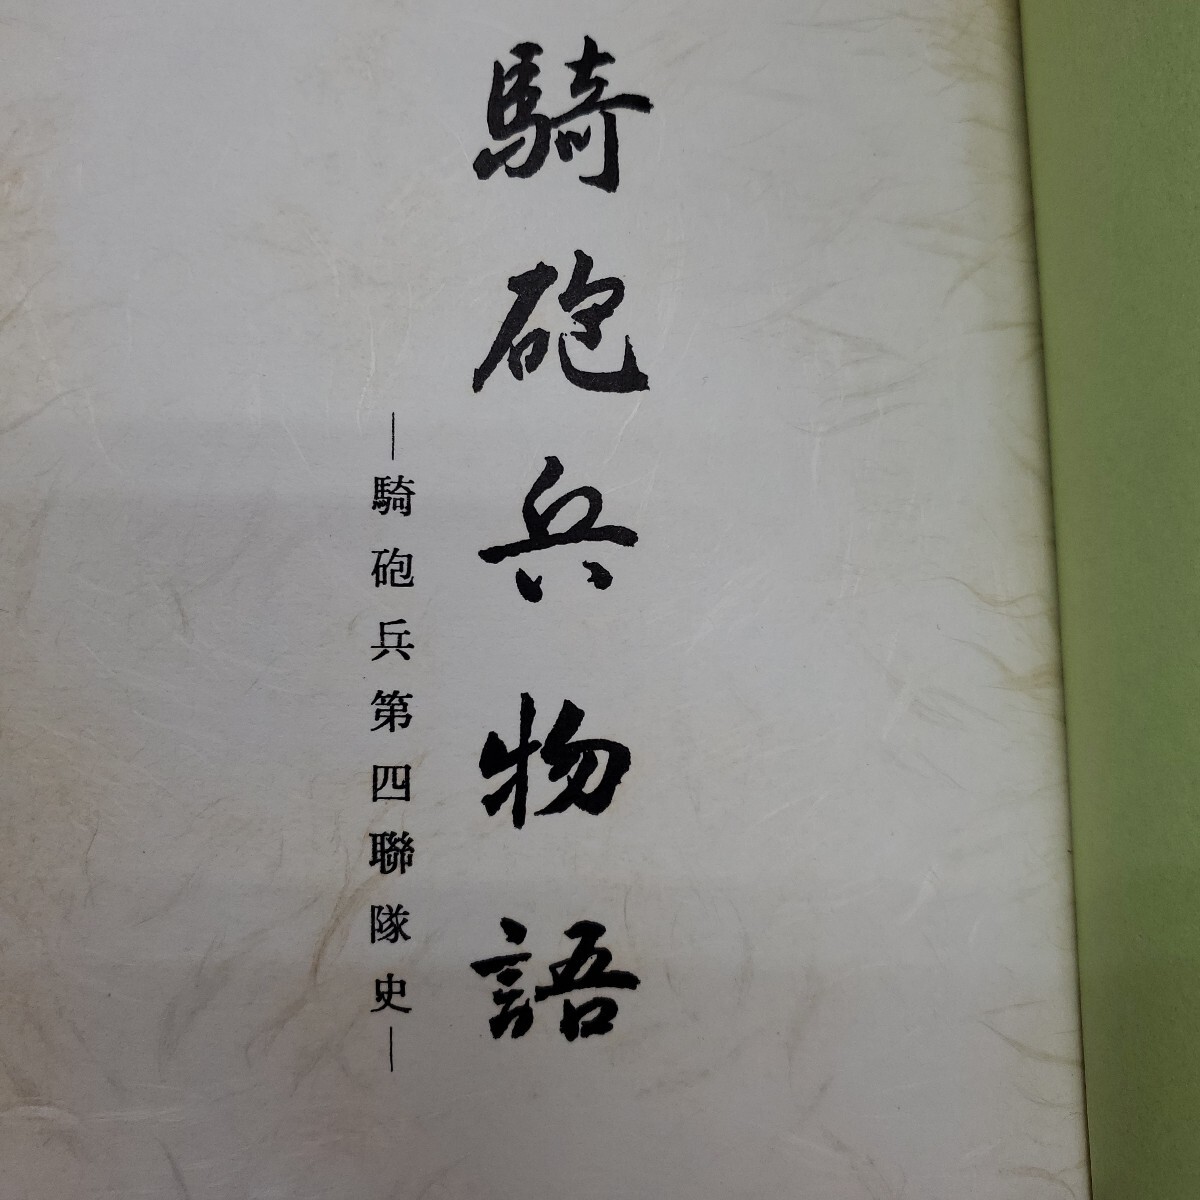 騎砲兵物語
―騎砲兵第四聯隊史―